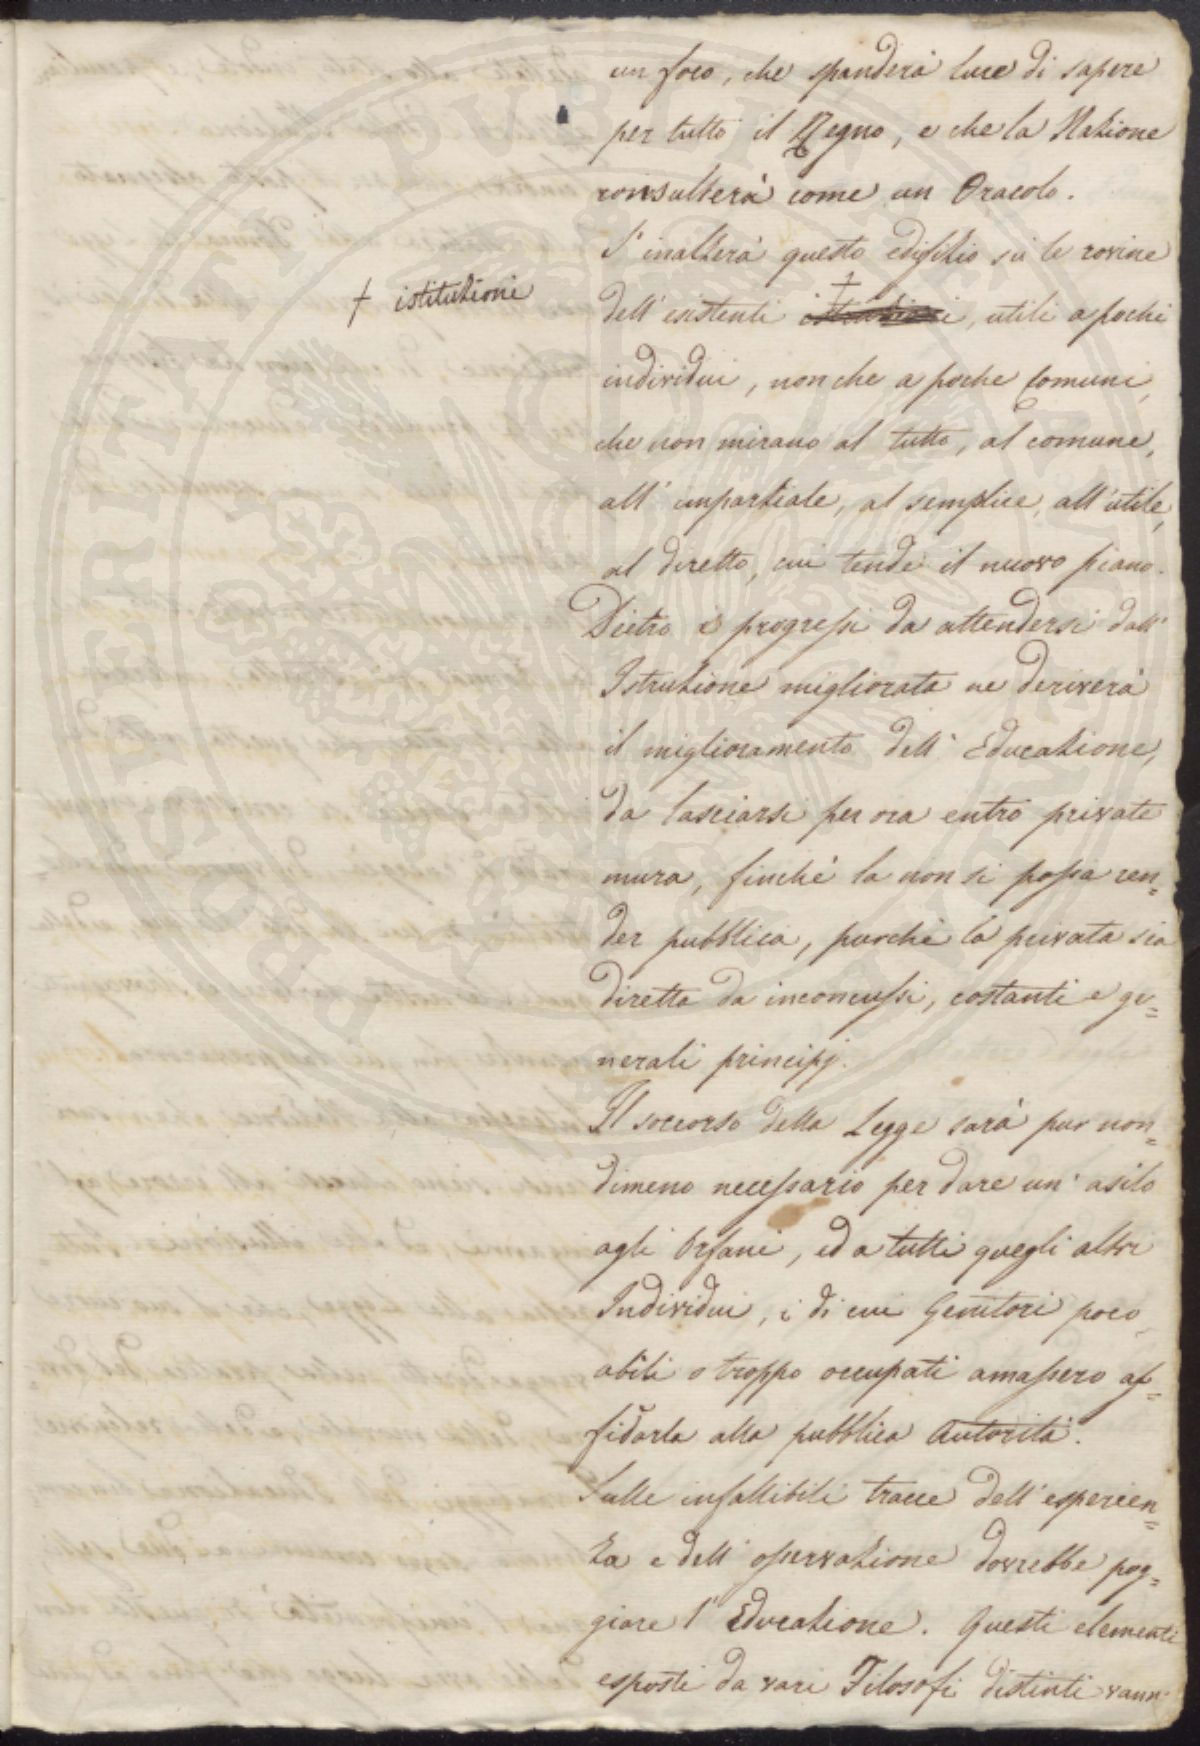 un foco, che spanderà luce di sapere
per tutto il Regno, e che la Nazione
consulterà come un Oracolo.
S'inalzerà questo edifizio su le rovine
† istituzioni
dell'esistenti †, utili a pochi
individui, non che a poche Comuni,
che non mirano al tutto, al comune,
all'imparziale, al semplice, all'utile,
al diretto, cui tende il nuovo piano.
Dietro i progressi da attendersi dall'
Istruzione migliorata ne deriverà
il miglioramento dell'Educazione,
da lasciarsi per ora entro private
mura, finchè la non si possa ren=
der pubblica, purchè la privata sia
diretta da inconcussi, costanti e ge=
nerali principj.
Il soccorso della Legge sarà pur non=
dimeno necessario per dare un'asilo
agli Orfani, ed a tutti quegli altri
Individui, i di cui Genitori poco
abili o troppo occupati amassero af=
fidarla alla pubblica Autorità.
Sulle infallibili tracce dell'esperien=
za e dell'osservazione dovrebbe pog=
giare l'Educazione. Questi elementi
esposti da vari Filosofi distinti vann
PVBLI
POSTERITATI